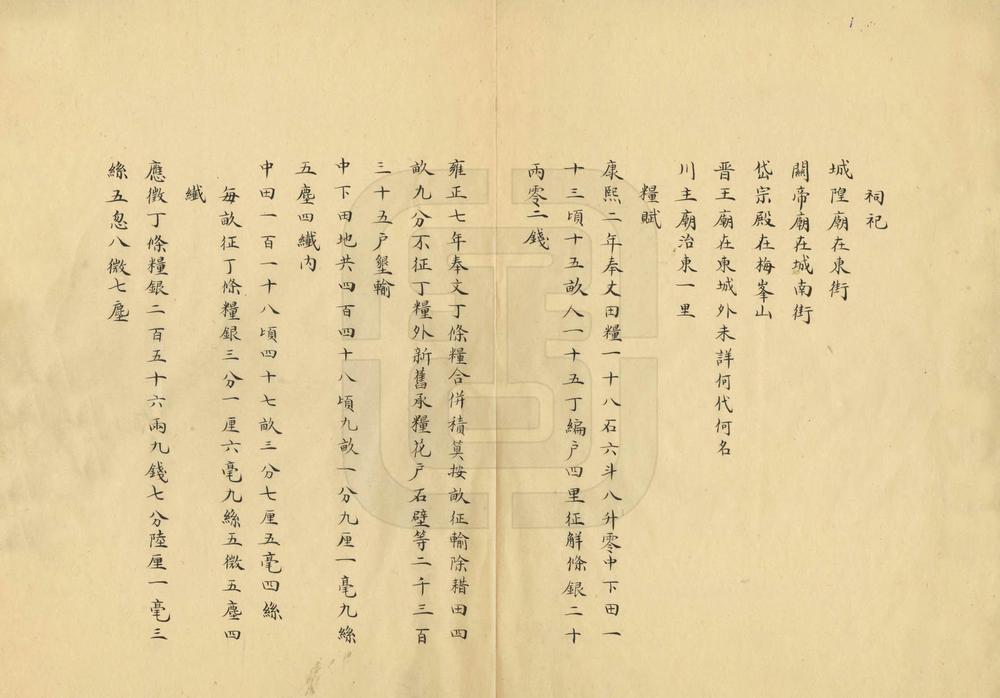 祠祀
城隍廟在東街
關帝廟在城南街
岱宗殿在梅峯山
晋王廟在東城外未詳何代何名
川主廟治東一里
糧賦
康熙二年奉丈田糧一十八石六斗八升零中下田一
十三頃十五畝人一十五丁編户四里征解條銀二十
兩零二錢
雍正七年奉文丁條糧合併積算按畝征輸除耤田四
畝九分不征丁糧外新舊承糧花户石壁等二千三百
三十五户墾輸
中下田地共四百四十八頃九畝一分九厘一毫九絲
五塵四纖内
中田一百一十八頃四十七畝三分七厘五毫四絲
每畝征丁條糧銀三分一厘六毫九絲五微五塵四
纖
應徵丁條糧銀二百五十六兩九錢七分陸厘一毫三
絲五忽八微七塵